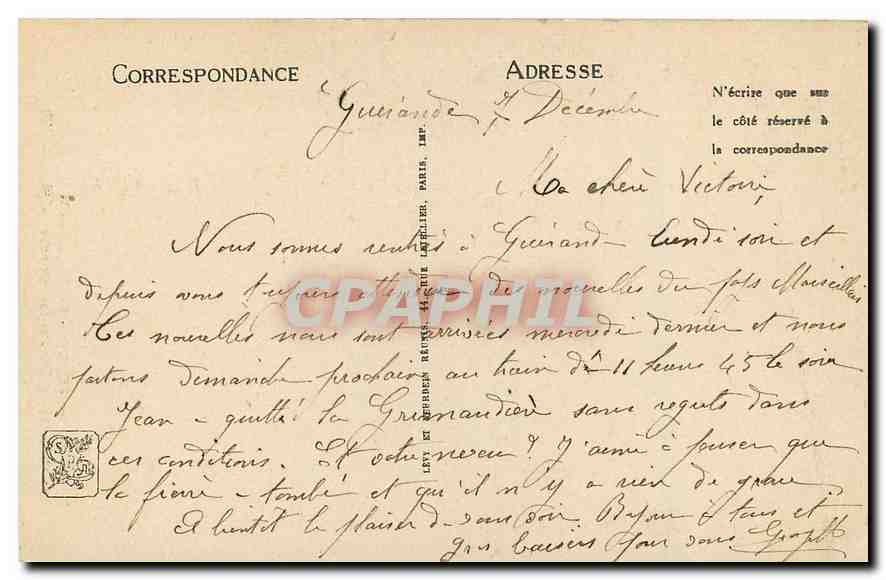 CORRESPONDANCE
ADRESSE
N'écrire que sur
le côté réservé à
la correspondance
Guérande Décembre
Ma chère Victoire,
Nous sommes rentrés à Guérande lundi soir et
depuis avons toujours attendu des nouvelles du
Ces nouvelles nous sont arrivées mercredi dernier et nous
partons dimanche prochain au train de 11 heures 45 le soir
Jean a quitté la sans regrets dans
ces conditions. Et votre neveu ? J'aime à penser que
la fièvre a tombé et qu'il n'y a rien de grave
A bientôt le plaisir de vous voir. à tous et
gros baisers pour vous
LÉVY ET NEURDEIN RÉUNIS, 44, RUE LETELLIER, PARIS, IMP.
CPAPHIL